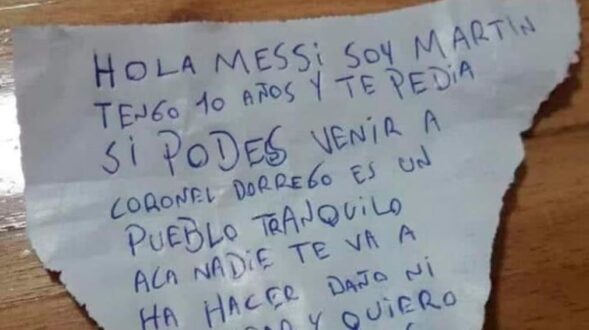 HOLA MESSI SOY MARTIN
TENGO 10 AÑOS Y TE PEDIA
SI PODES VENIR A
CORONEL DORREGO ES UN
PUEBLO TRANQUILO
ACA NADIE TE VA A
HA HACER DAÑO NI
Y QUIERO